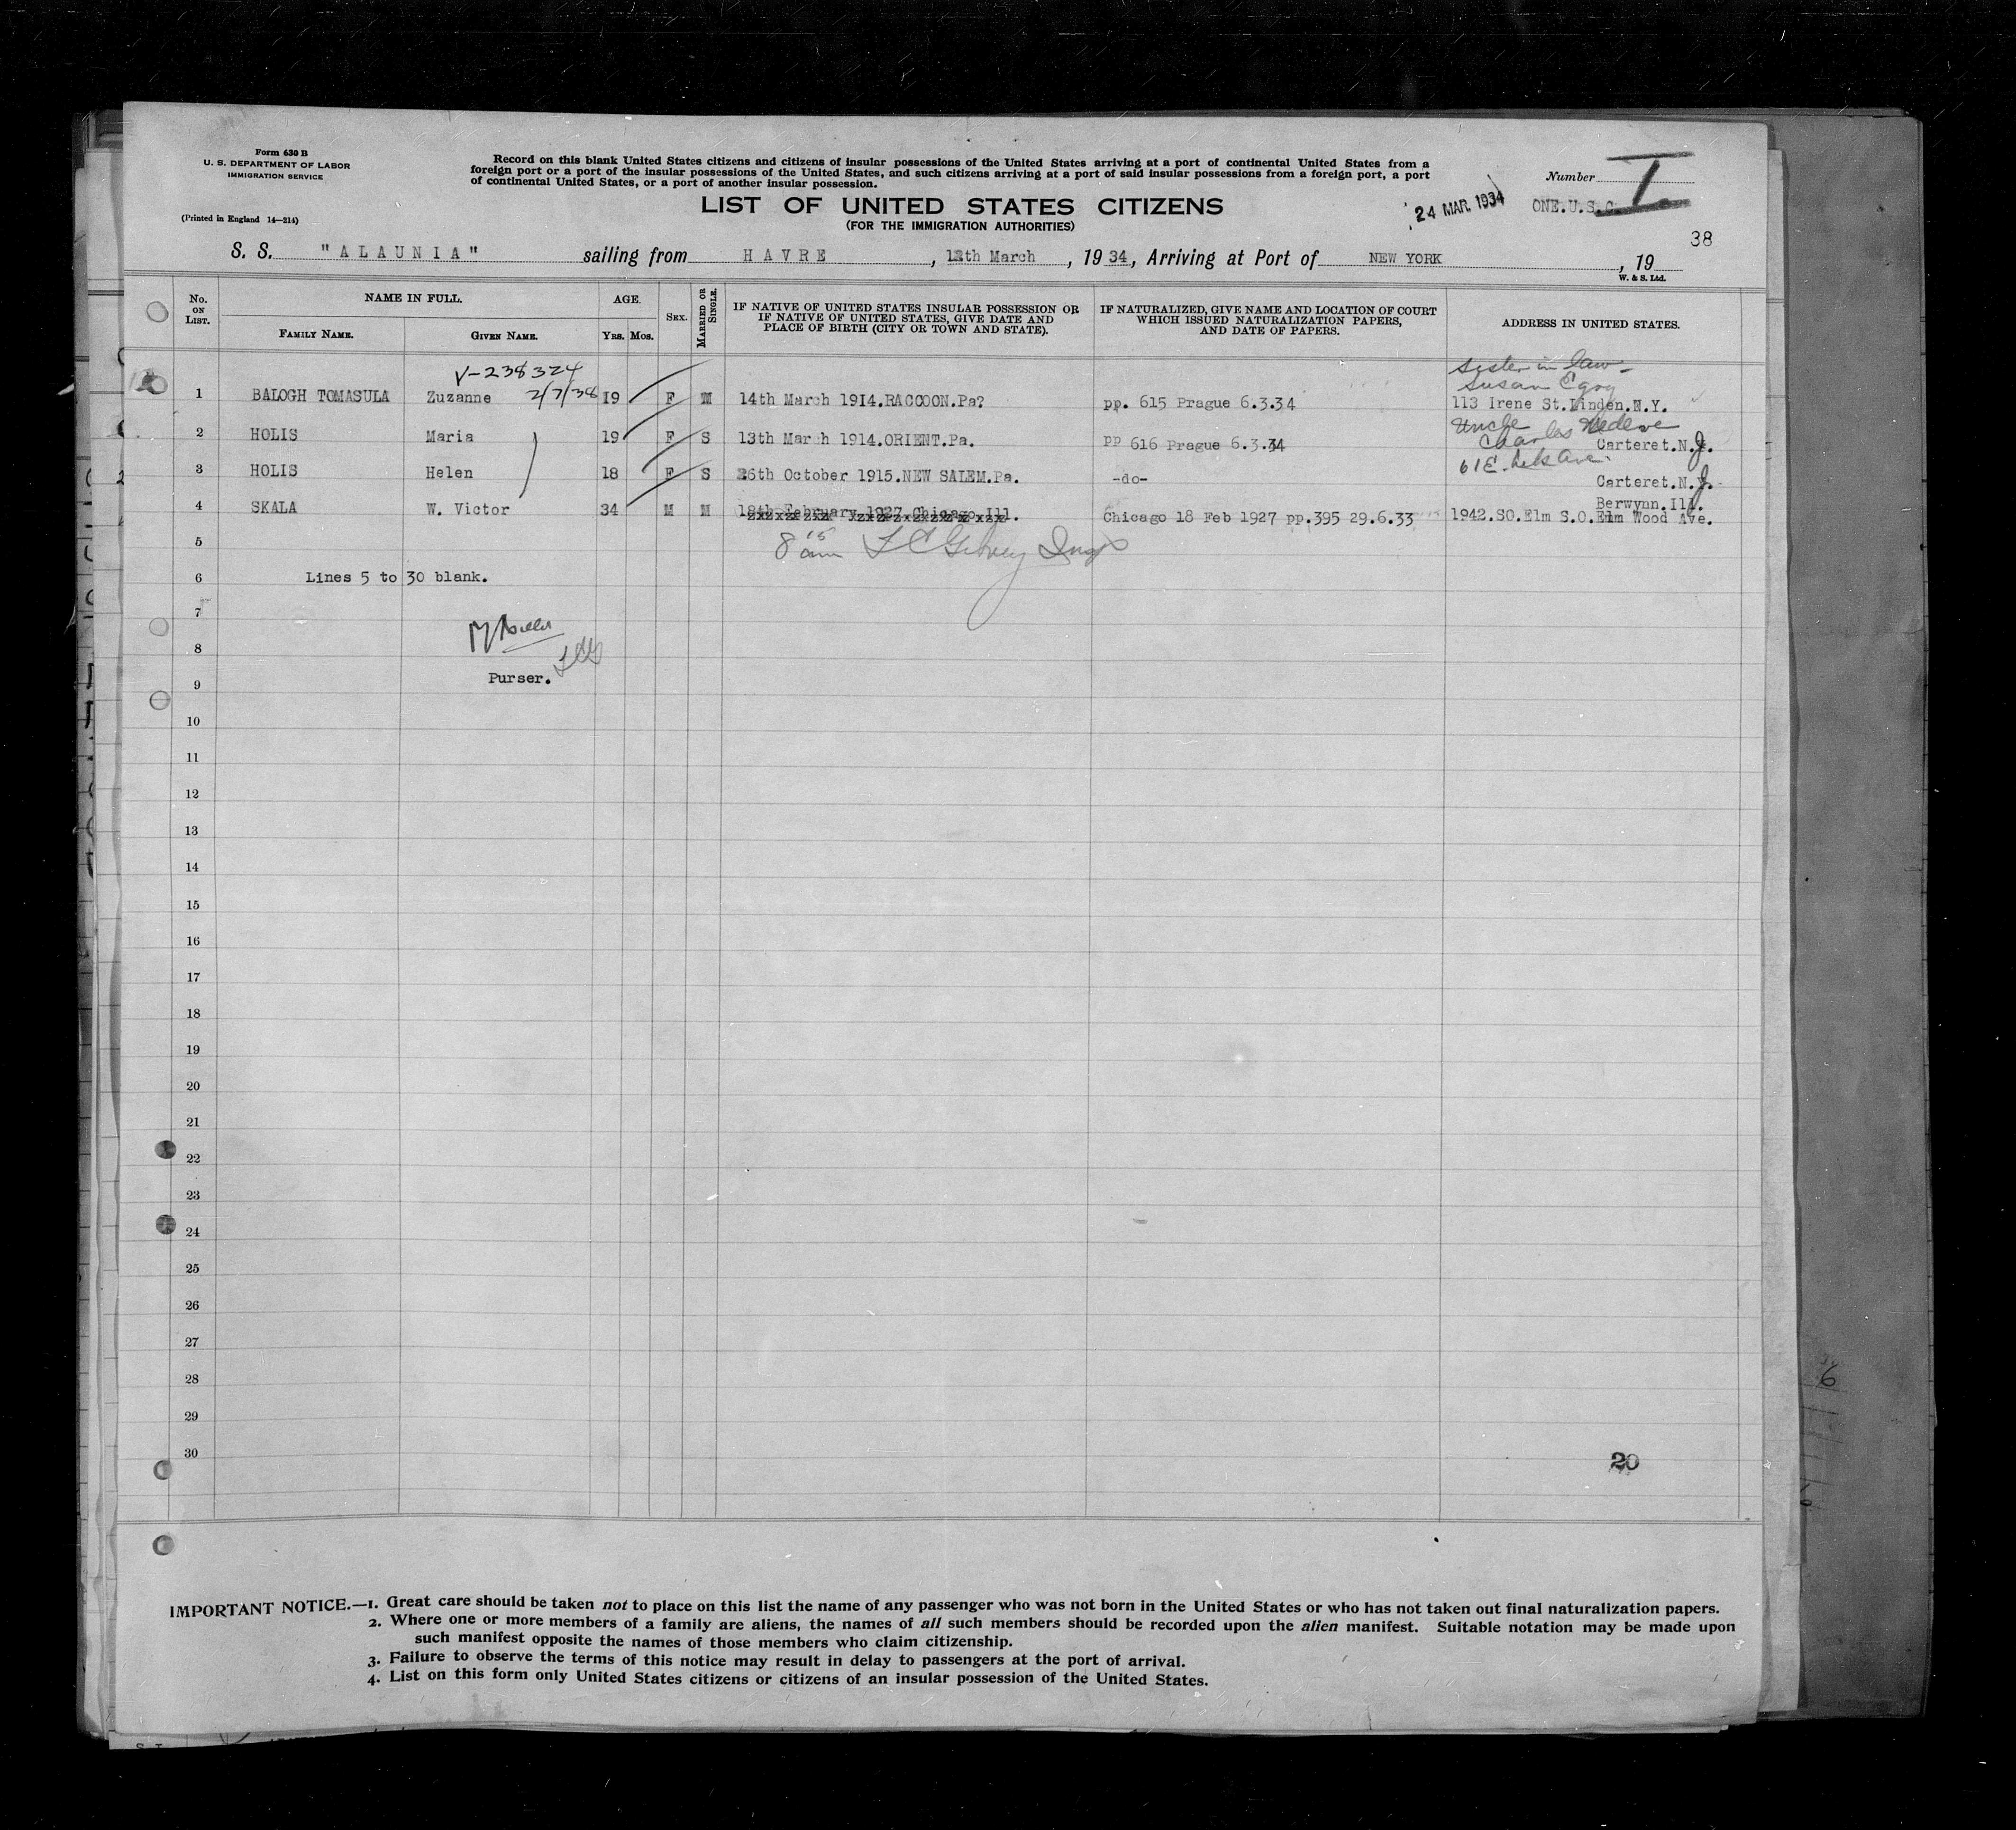 Form 630 B
U. S. DEPARTMENT OF LABOR
IMMIGRATION SERVICE
(Printed in England 14—214)
Record on this blank United States citizens and citizens of insular possessions of the United States arriving at a port of continental United States from a
foreign port or a port of the insular possessions of the United States, and such citizens arriving at a port of said insular possessions from a foreign port, a port
of continental United States, or a port of another insular possession.
LIST OF UNITED STATES CITIZENS
(FOR THE IMMIGRATION AUTHORITIES)
24 MAR. 1934
Number I
ONE.U.S.C.
38
S. S. "ALAUNIA" sailing from HAVRE, 12th March, 19 34, Arriving at Port of NEW YORK, 19
W. & S. Ltd.
No. ON LIST.
NAME IN FULL.
FAMILY NAME.
GIVEN NAME.
AGE.
YRS. MOS.
SEX.
MARRIED OR SINGLE.
IF NATIVE OF UNITED STATES INSULAR POSSESSION OR
IF NATIVE OF UNITED STATES, GIVE DATE AND
PLACE OF BIRTH (CITY OR TOWN AND STATE).
IF NATURALIZED, GIVE NAME AND LOCATION OF COURT
WHICH ISSUED NATURALIZATION PAPERS,
AND DATE OF PAPERS.
ADDRESS IN UNITED STATES.
V-238324
2/7/38
Sister in law -
Susan Egry
1 BALOGH TOMASULA Zuzanne 19 F M 14th March 1914.RACCOON.Pa? pp. 615 Prague 6.3.34 113 Irene St.Linden.N.Y.
Uncle
Charles
2 HOLIS Maria 19 F S 13th March 1914.ORIENT.Pa. pp 616 Prague 6.3.34 Carteret.N.J.
61 E. Ave.
3 HOLIS Helen 18 F S 26th October 1915.NEW SALEM.Pa. -do- Carteret.N.J.
Berwynn.Ill.
4 SKALA W. Victor 34 M M 18th February 1927.Chicago.Ill. Chicago 18 Feb 1927 pp.395 29.6.33 1942.SO.Elm S.O.Elm Wood Ave.
5
8 15 am
6 Lines 5 to 30 blank.
7
8
9 Purser.
10
11
12
13
14
15
16
17
18
19
20
21
22
23
24
25
26
27
28
29
30
20
IMPORTANT NOTICE.—1. Great care should be taken not to place on this list the name of any passenger who was not born in the United States or who has not taken out final naturalization papers.
2. Where one or more members of a family are aliens, the names of all such members should be recorded upon the alien manifest. Suitable notation may be made upon
such manifest opposite the names of those members who claim citizenship.
3. Failure to observe the terms of this notice may result in delay to passengers at the port of arrival.
4. List on this form only United States citizens or citizens of an insular possession of the United States.